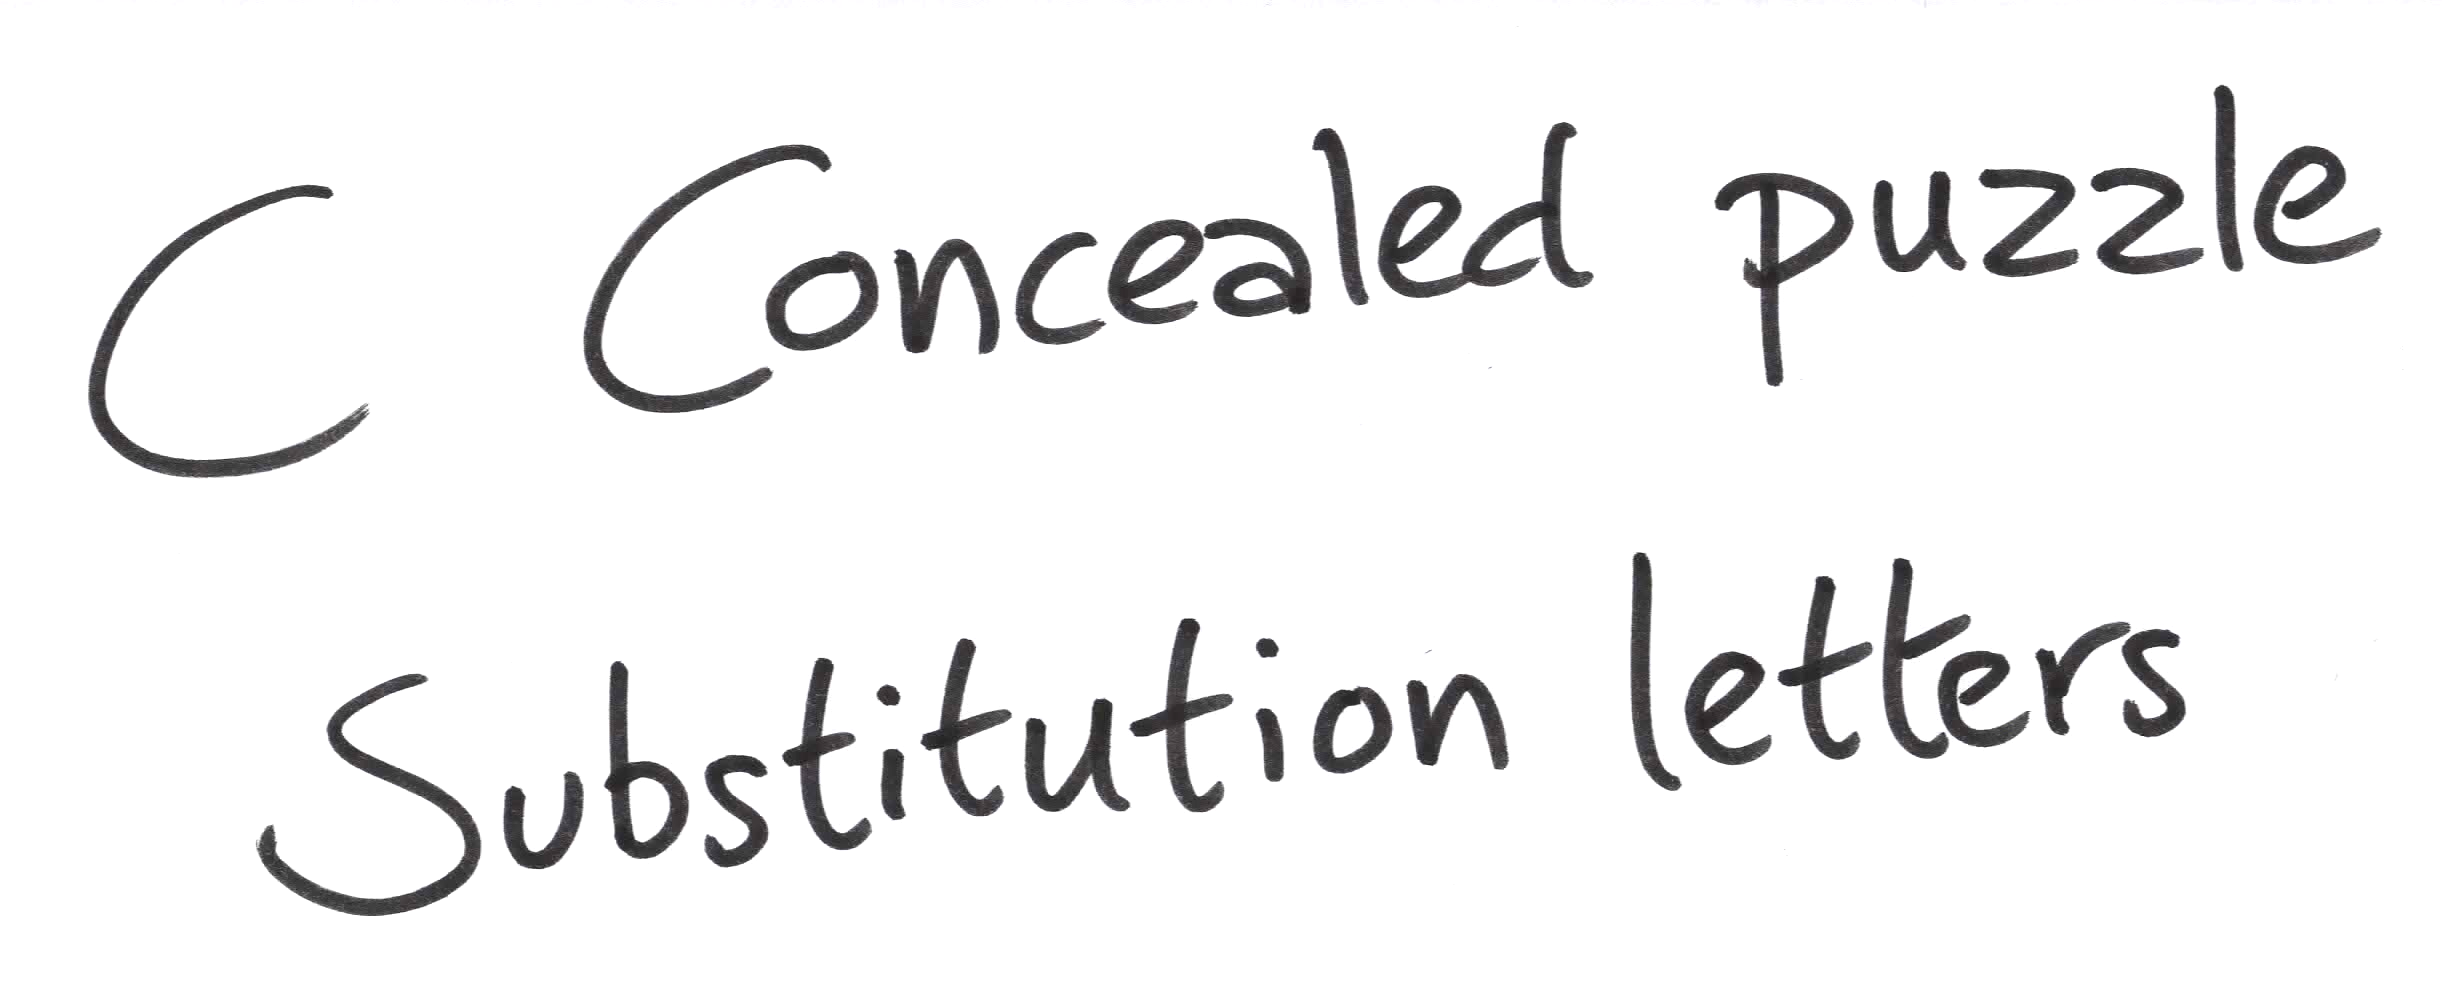 C Concealed puzzle
Substitution letters